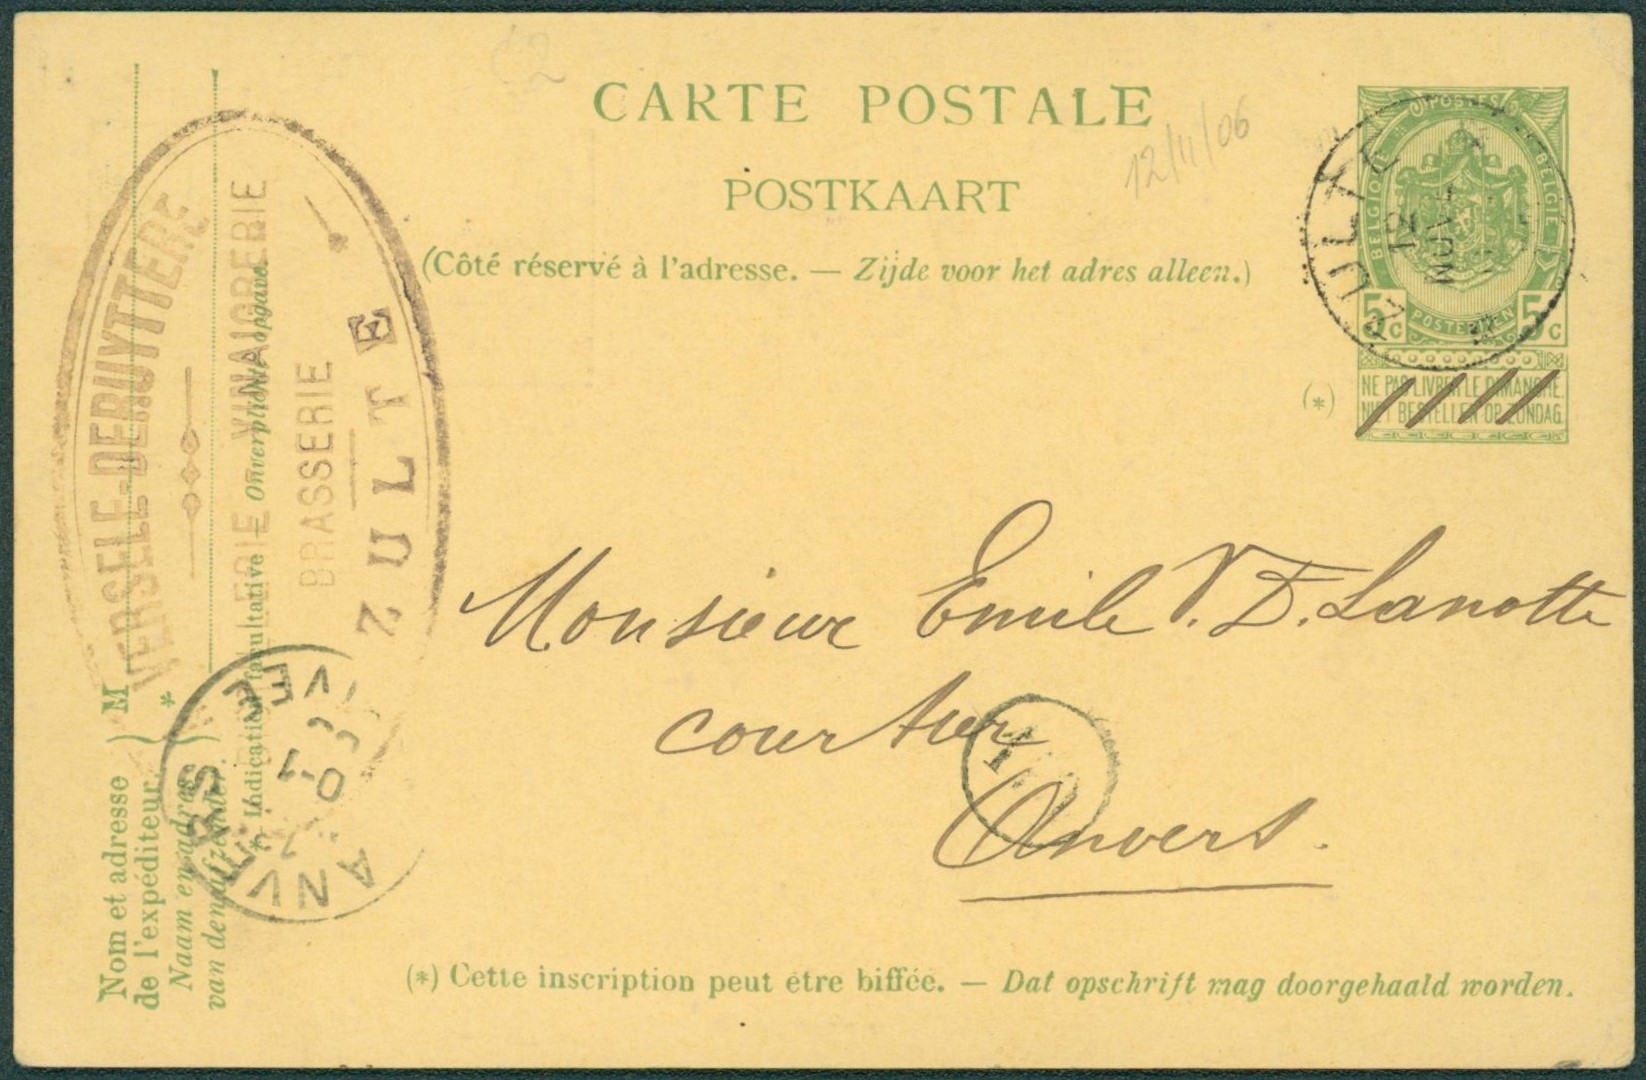 CARTE POSTALE
POSTKAART
(Côté réservé à l'adresse. — Zijde voor het adres alleen.)
12/11/06
POSTES
BELGIQUE
BELGIË
POSTERIJEN
5c 5c
NE PAS LIVRER LE DIMANCHE.
NIET BESTELLEN OP ZONDAG.
(*)
ZULTE
12
NOVE
VERSELE-DERUYTTERE
VINAIGRERIE
BRASSERIE
ZULTE
Monsieur Emile V. D. Lanotte
courtier
Anvers.
ANVERS
Nom et adresse
de l'expéditeur.
Naam en adres
van den afzender.
} M
} *
* Indication facultative — Onverplichte opgave.
(*) Cette inscription peut être biffée. — Dat opschrift mag doorgehaald worden.